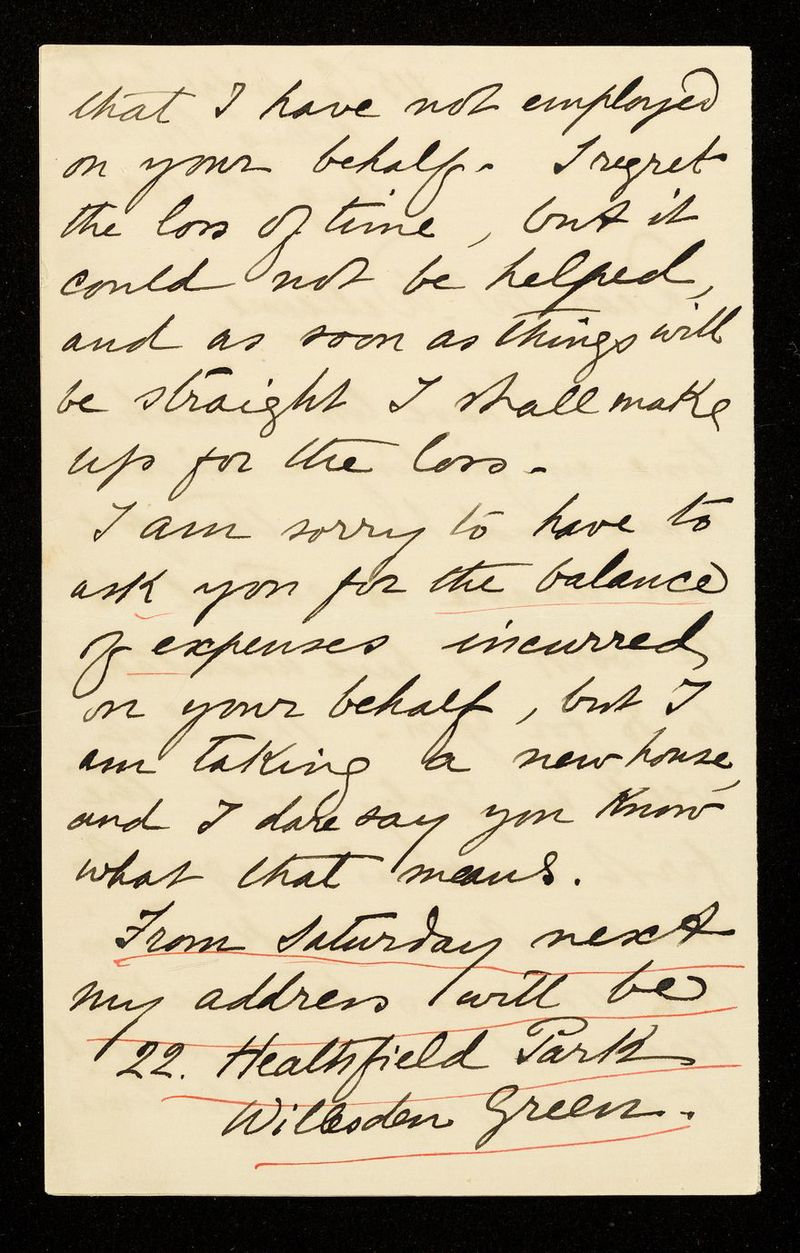 that I have not employed
on your behalf. I regret
the loss of time, but it
could not be helped,
and as soon as things will
be straight I shall make
up for the loss.
I am sorry to have to
ask you for the balance
of expenses incurred
on your behalf, but I
am taking a new house,
and I dare say you know
what that means.
From Saturday next
my address will be
22. Heathfield Park
Willesden Green.